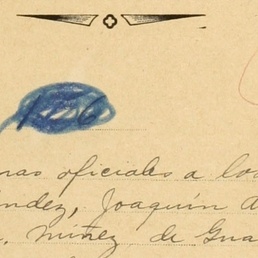 126
nas oficiales a los
ndez, Joaquín d
. Núñez de Gua